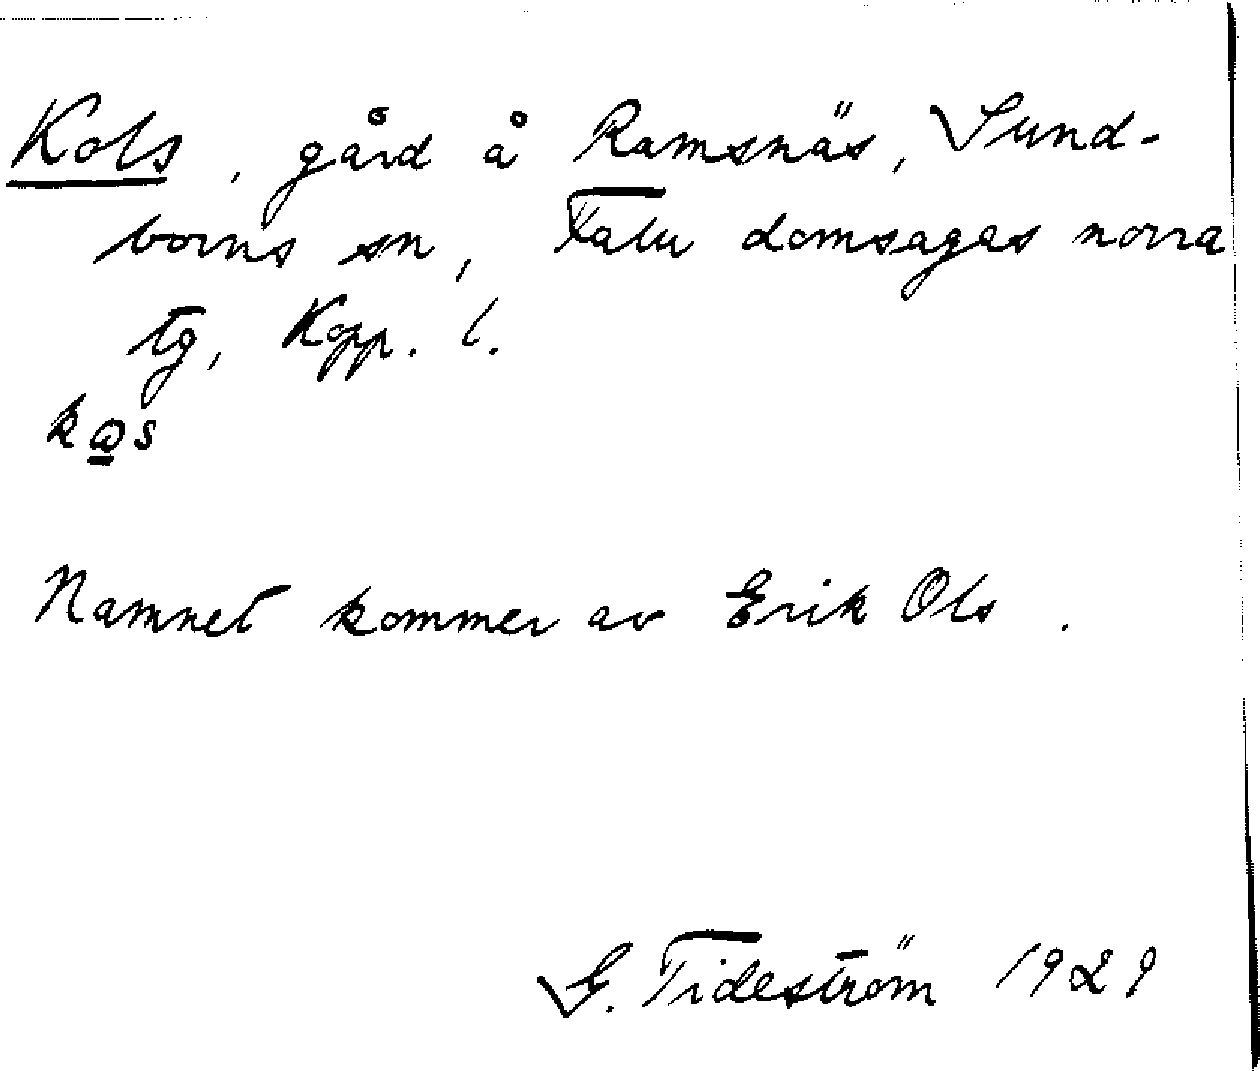 Kols, gård å Ramsnäs, Sund-
borns sn, Falu domsagas norra
tg, Kopp. l.
Namnet kommer av Erik Ols.
G. Tideström 1929